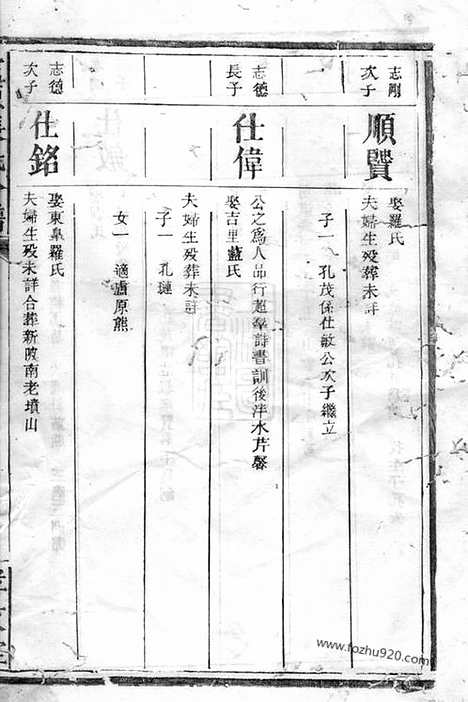 志剛次子
順贒
娶羅氏
夫婦生殁葬未詳
子一 孔茂係仕敏公次子繼立
志德長子
仕偉
公之爲人品行超羣詩書訓後泮水芹馨
娶吉里藍氏
夫婦生殁葬未詳
子一 孔璉
女一 適盧原熊
志德次子
仕銘
娶東阜羅氏
夫婦生殁未詳合葬新陂南老墳山
www.fozhu920.com